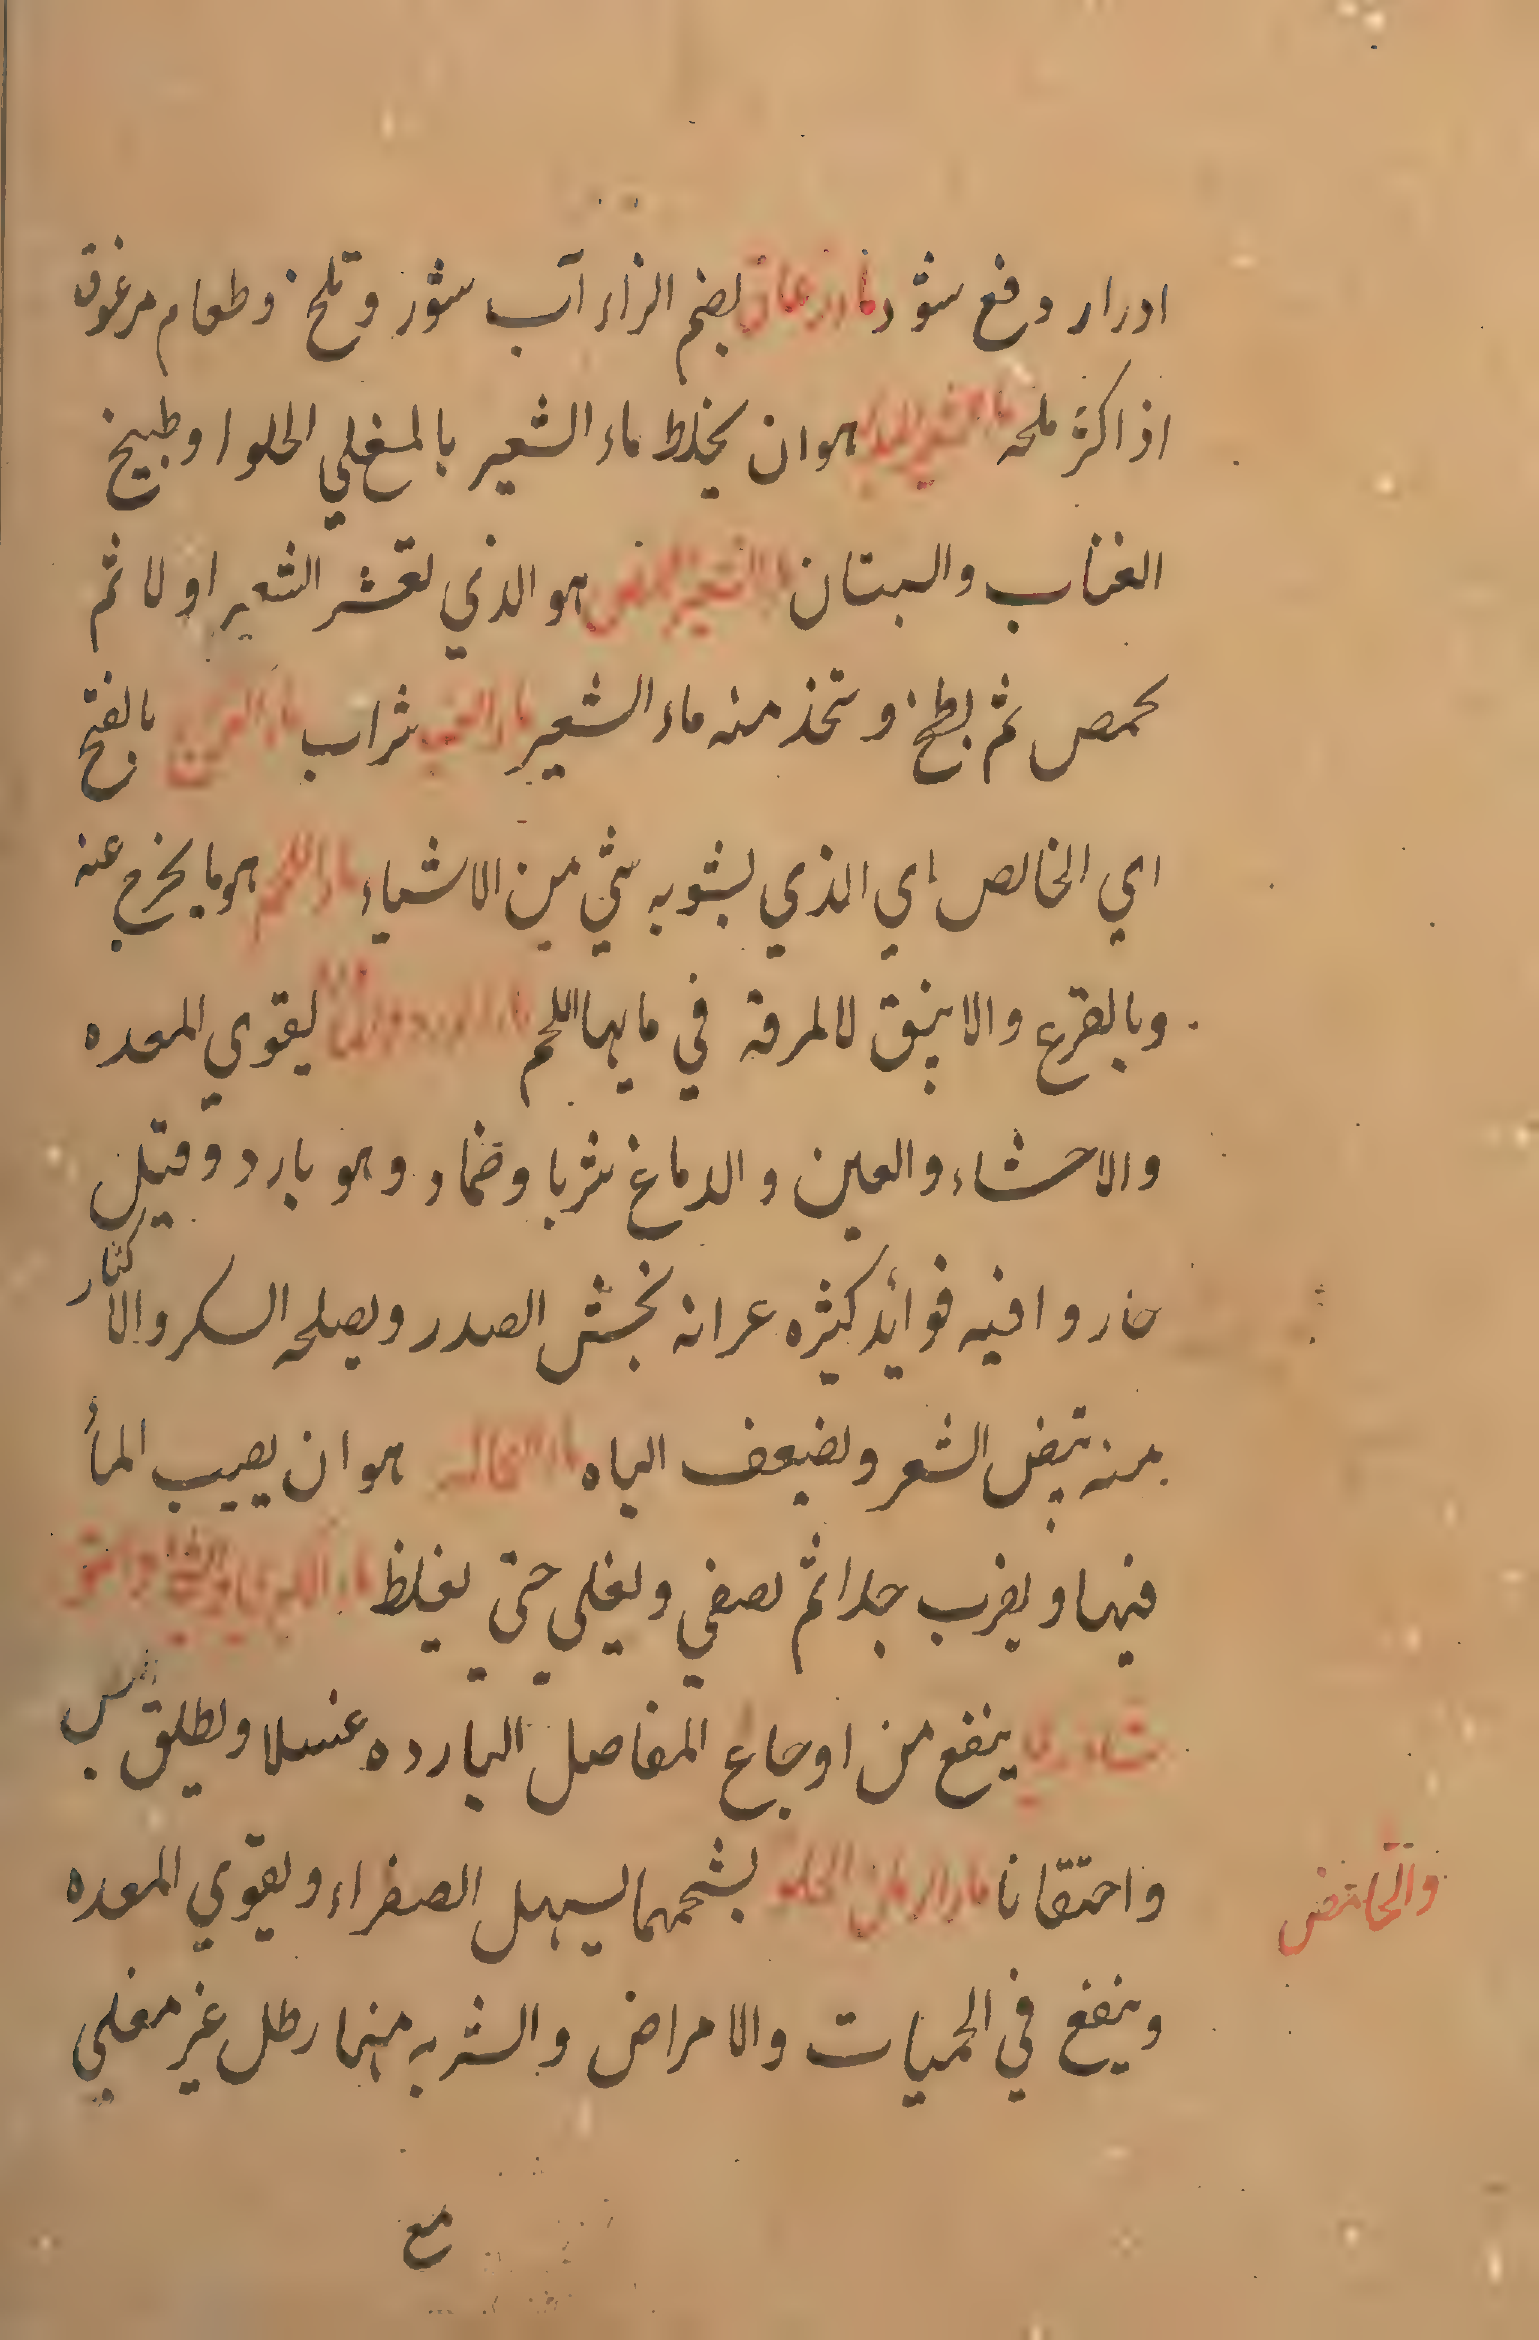 ادرار دفع شود ماء زعاق بضم الزاء آب شور و تلخ وطعام مزعوق
اذا كثر ملحه ماء الشعير المدبر هو ان يخلط ماء الشعير بالمغلي الحلو او طبيخ
العناب والسبستان ماء الشعير المحمص هو الذي يقشر الشعير اولا ثم
يحمص ثم يطبخ و يتخذ منه ماء الشعير ماء العنب شراب ماء القراح بالفتح
اي الخالص اي الذي يشوبه شئ من الاشياء ماء اللحم هو ما يخرج عنه
وبالقرع والانبيق لالمرقة في مايها اللحم ماء الورد يقوي المعده
والاحشاء والعين والدماغ شربا وضماد وهو بارد وقيل
حار وافيه فوائد كثيره عرانه يخشن الصدر ويصلحه السكر والاكثار
منه يبيض الشعر ويضعف الباه ماء النخاله هو ان يصيب الماء
فيها ويضرب جدا ثم يصفي ويغلي حتي يغلظ
ينفع من اوجاع المفاصل البارده غسلا ويطلق
واحتقانا ماء الرمان الحلو بشحمهما يسهل الصفراء ويقوي المعده
والحامض
وينفع في الحميات والامراض والشربه منهما رطل غير مغلي
مع